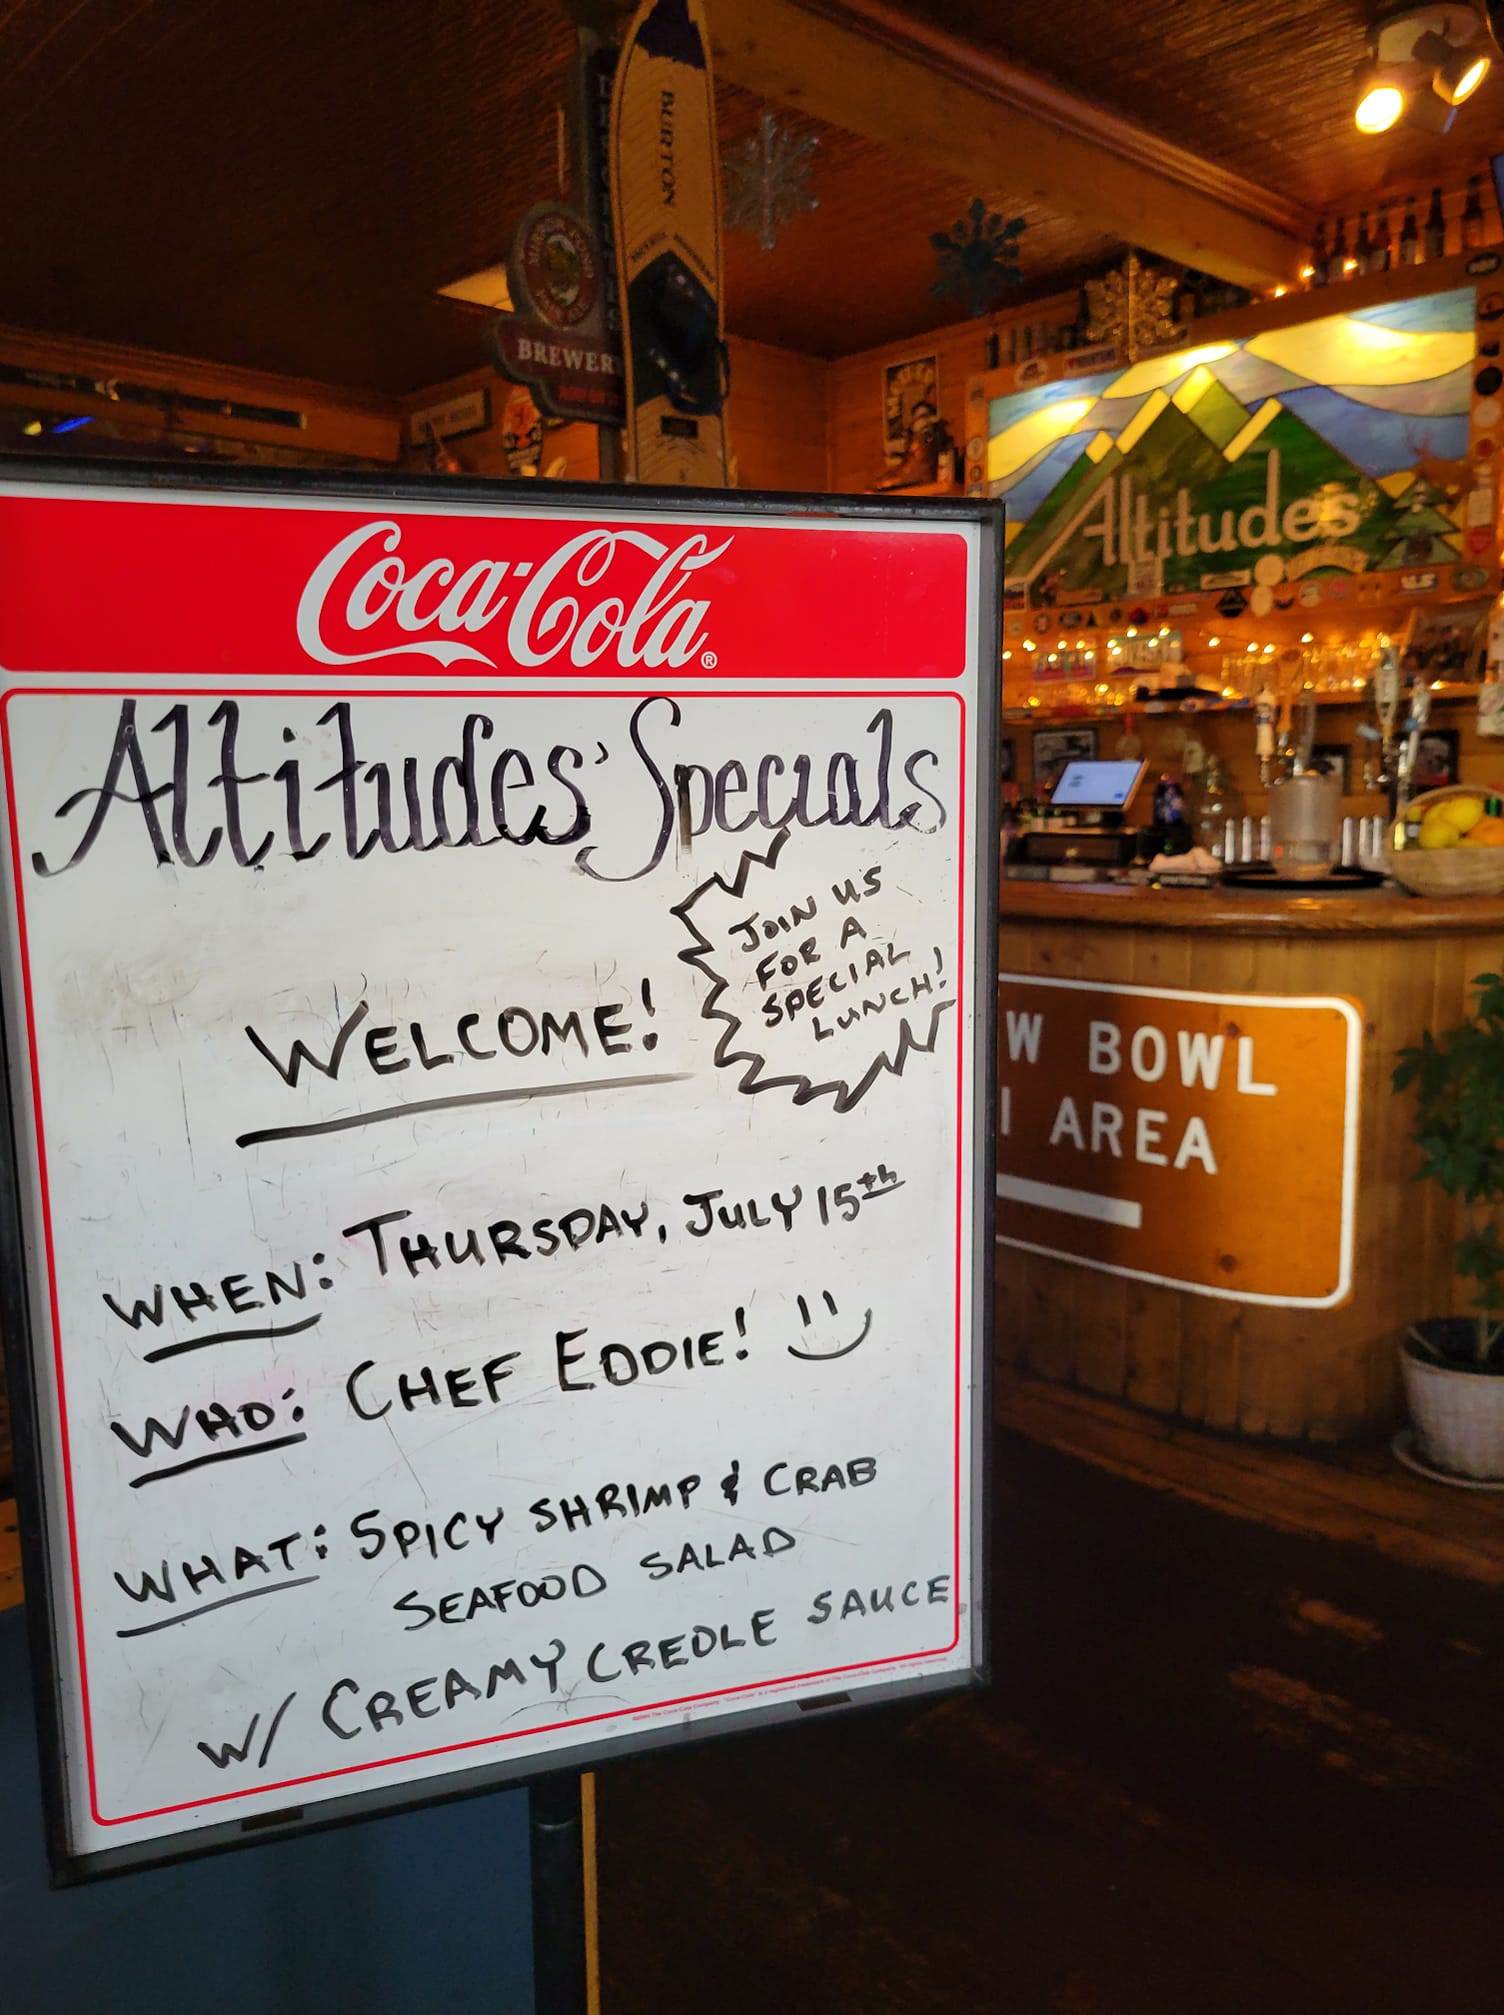 BURTON
BREWER
Altitudes
Coca-Cola®
Altitudes' Specials
JOIN US
FOR A
SPECIAL
LUNCH!
WELCOME!
WHEN: THURSDAY, JULY 15th
WHO: CHEF EDDIE!
WHAT: SPICY SHRIMP & CRAB
SEAFOOD SALAD
W/ CREAMY CREOLE SAUCE
W BOWL
I AREA